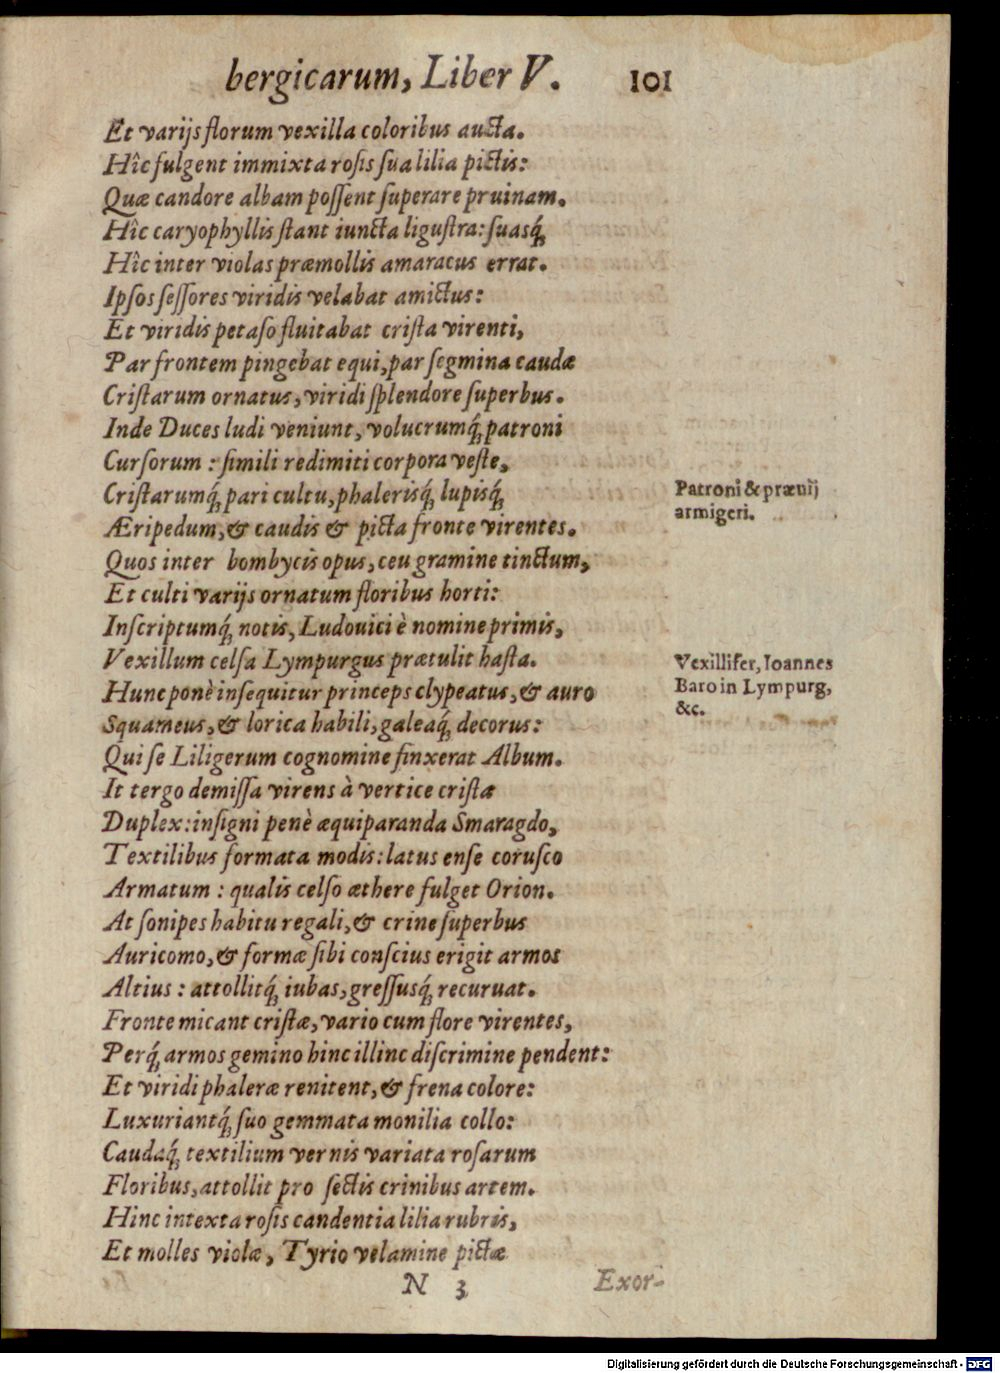 bergicarum, Liber V. 101
Et varijs florum vexilla coloribus aucta.
Hîc fulgent immixta rosis sua lilia pictis:
Quæ candore albam possent superare pruinam.
Hîc caryophyllis stant iuncta ligustra: suasq́;
Hîc inter violas præmollis amaracus errat.
Ipsos sessores viridis velabat amictus:
Et viridis petaso fluitabat crista virenti,
Par frontem pingebat equi, par segmina caudæ
Cristarum ornatus, viridi splendore superbus.
Inde Duces ludi veniunt, volucrumq́; patroni
Cursorum: simili redimiti corpora veste,
Cristarumq́; pari cultu, phalerisq́; lupisq́;
Patroni & præuij
armigeri.
Æripedum, & caudis & picta fronte virentes.
Quos inter bombycis opus, ceu gramine tinctum,
Et culti varijs ornatum floribus horti:
Inscriptumq́; notis, Ludouici è nomine primis,
Vexillum celsa Lympurgus prætulit hasta.
Vexillifer, Ioannes
Baro in Lympurg,
&c.
Hunc ponè insequitur princeps clypeatus, & auro
Squameus, & lorica habili, galeaq́; decorus:
Qui se Liligerum cognomine finxerat Album.
It tergo demissa virens à vertice crista
Duplex: insigni penè æquiparanda Smaragdo,
Textilibus formata modis: latus ense corusco
Armatum: qualis celso æthere fulget Orion.
At sonipes habitu regali, & crine superbus
Auricomo, & formæ sibi conscius erigit armos
Altius: attollitq́; iubas, gressusq́; recuruat.
Fronte micant cristæ, vario cum flore virentes,
Perq́; armos gemino hinc illinc discrimine pendent:
Et viridi phaleræ renitent, & frena colore:
Luxuriantq́; suo gemmata monilia collo:
Caudaq́; textilium vernis variata rosarum
Floribus, attollit pro sectis crinibus artem.
Hinc intexta rosis candentia lilia rubris,
Et molles violæ, Tyrio velamine pictæ
N 3 Exor-
Digitalisierung gefördert durch die Deutsche Forschungsgemeinschaft - DFG